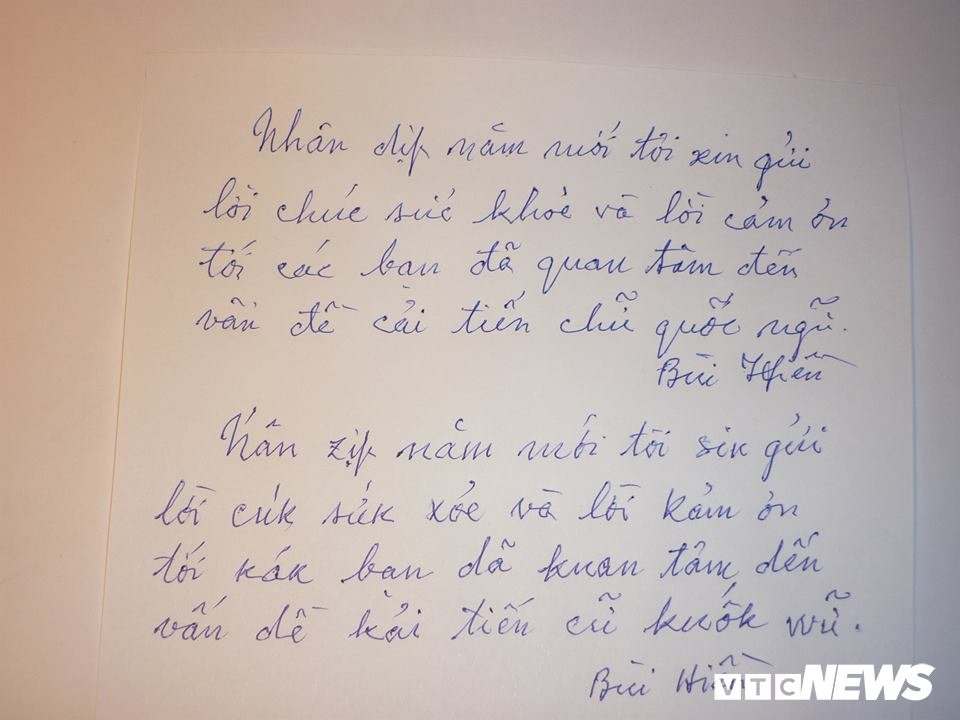 Nhân dịp năm mới tôi xin gửi
lời chúc sức khỏe và lời cảm ơn
tới các bạn đã quan tâm đến
vấn đề cải tiến chữ quốc ngữ.
Bùi Hiền
Nhân zịp năm mới tôi sin gửi
lời cúk sứk xỏe và lời kảm ơn
tới kák bạn dã kuan tâm dến
vấn dề kải tiến cữ kuốk wữ.
Bùi Hiền
VTC NEWS